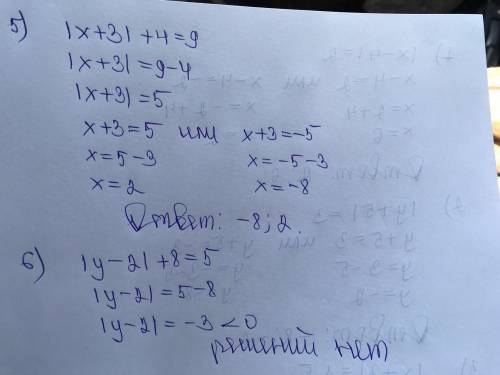 5) |x+3|+4=9
|x+3|=9-4
|x+3|=5
x+3=5 или x+3=-5
x=5-3 x=-5-3
x=2 x=-8
Ответ: -8; 2.
6) |y-2|+8=5
|y-2|=5-8
|y-2|=-3<0
решений нет